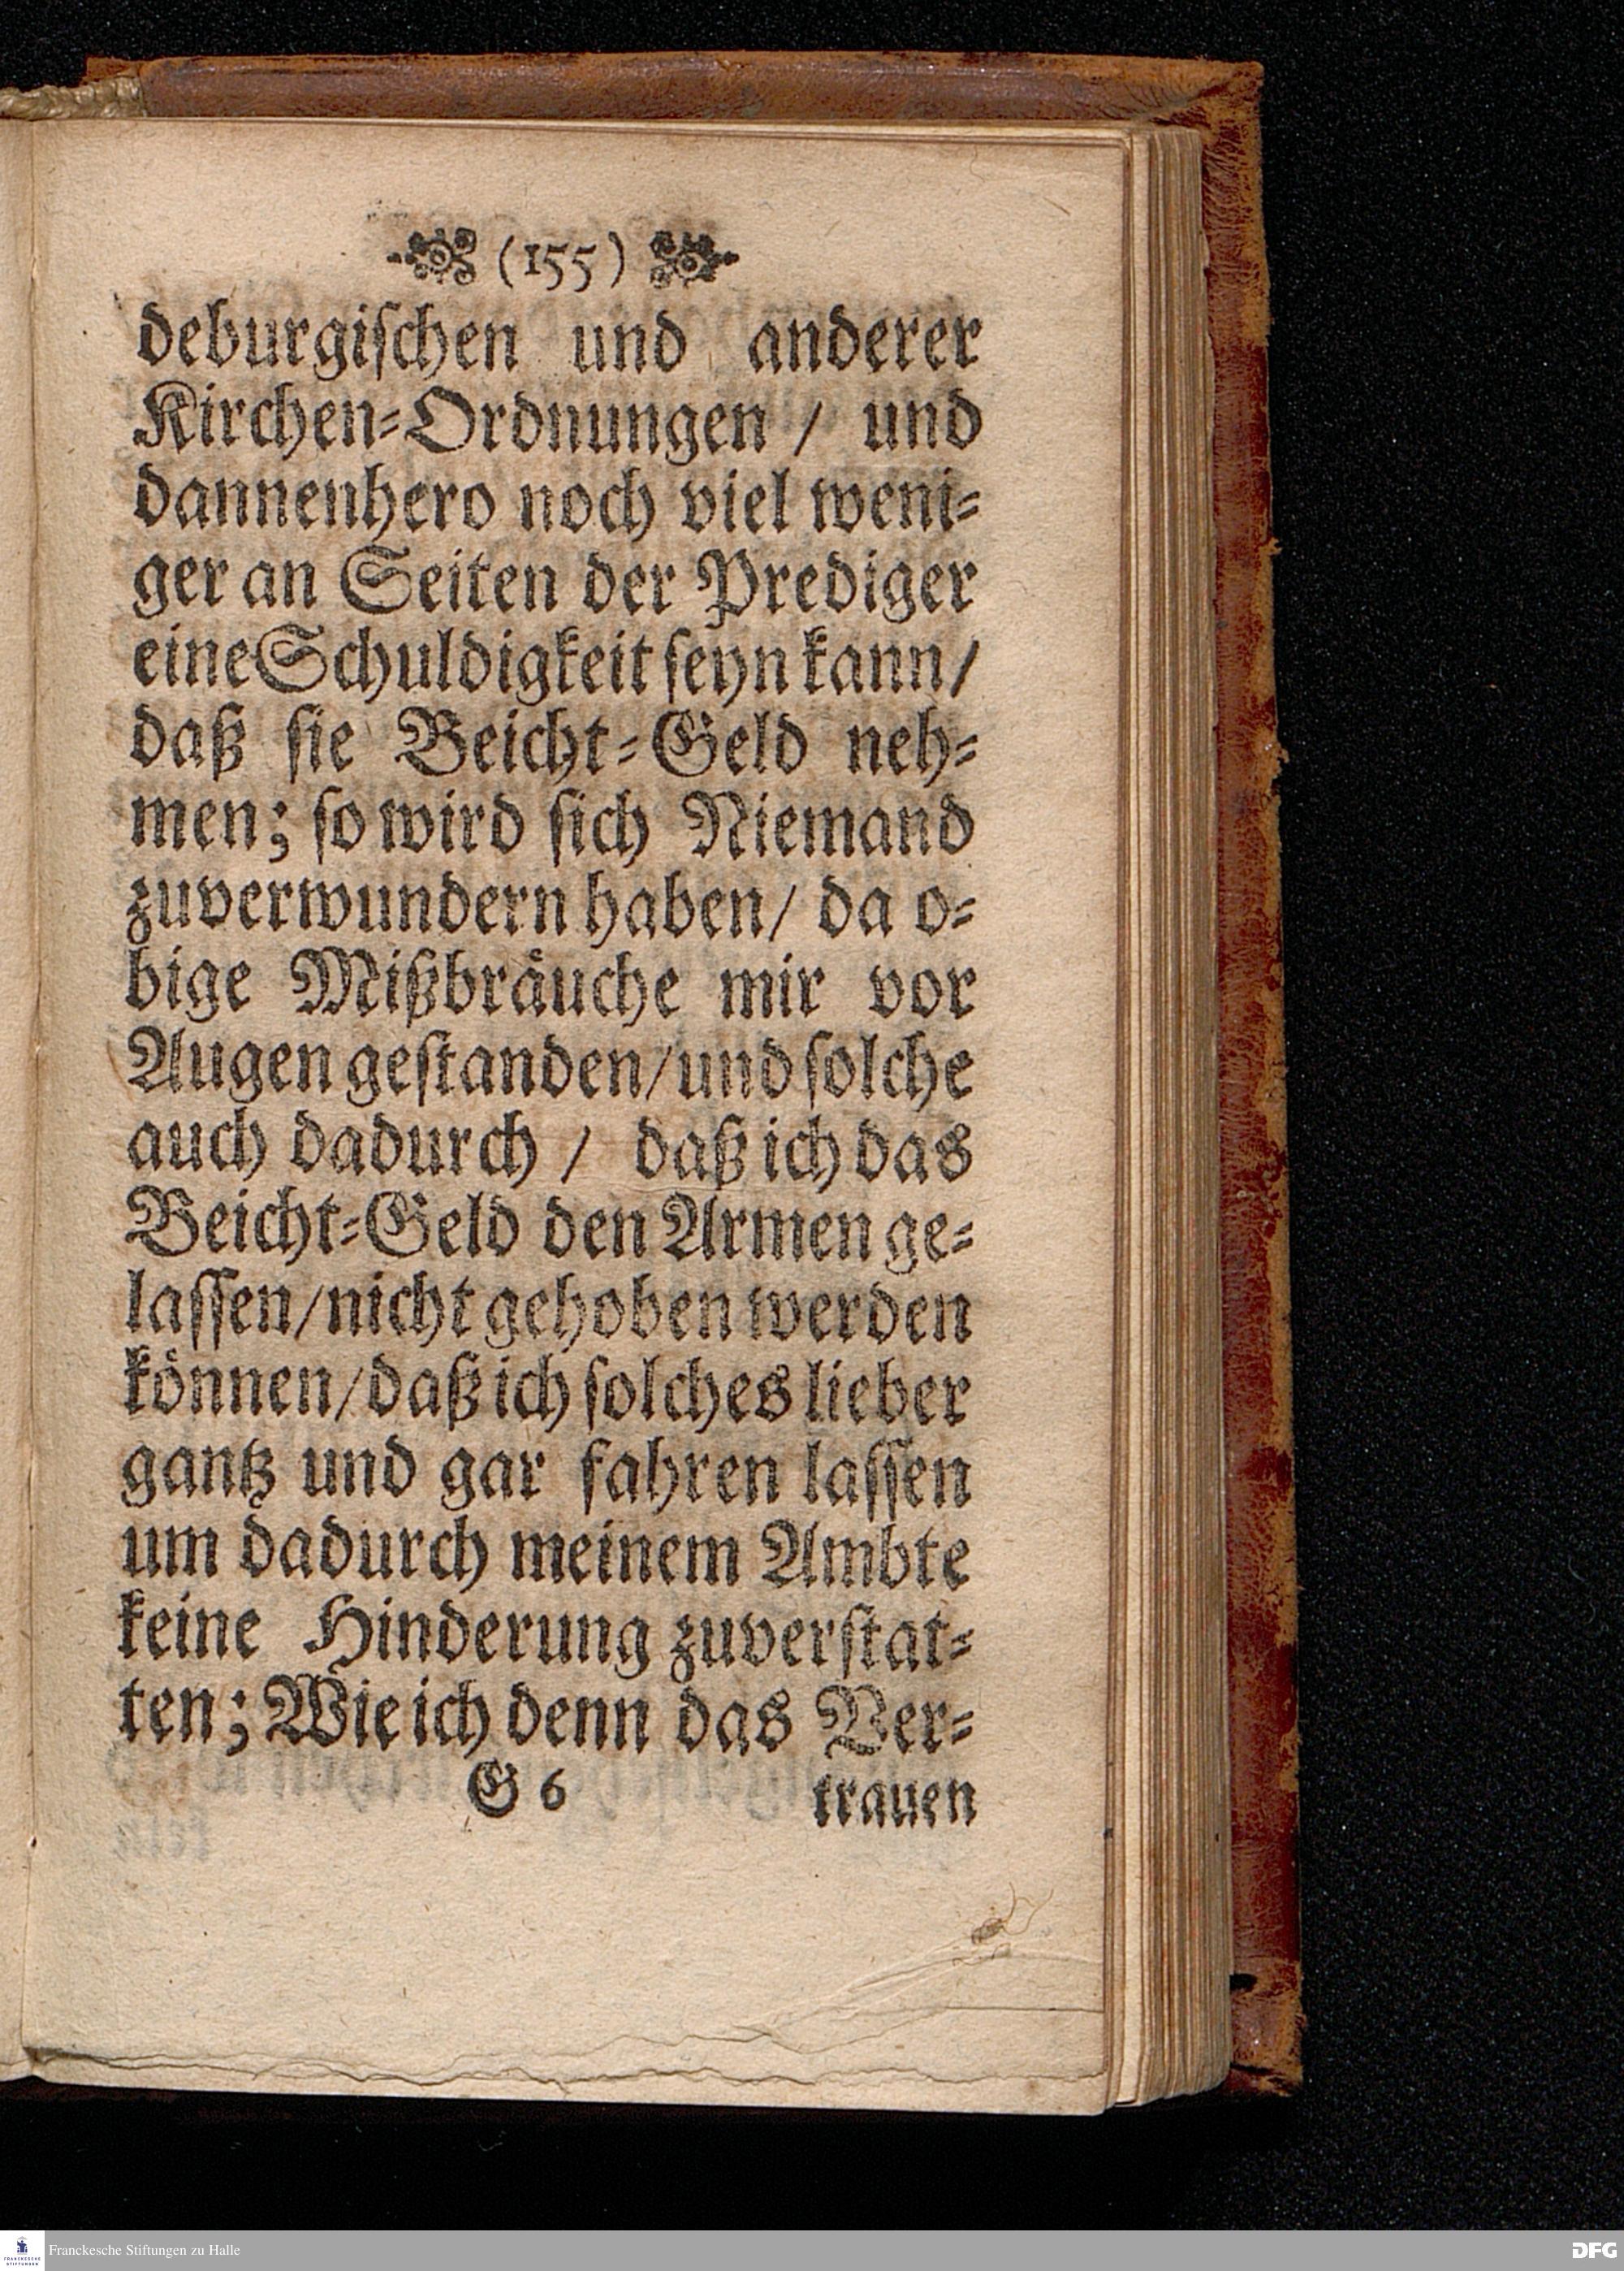 (155)
deburgischen und anderer
Kirchen-Ordnungen / und
dannenhero noch viel weni-
ger an Seiten der Prediger
eine Schuldigkeit seyn kann/
daß sie Beicht-Geld neh-
men; so wird sich Niemand
zuverwundern haben/ da o-
bige Mißbräuche mir vor
Augen gestanden/und solche
auch dadurch / daß ich das
Beicht-Geld den Armen ge-
lassen/nicht gehoben werden
können/daß ich solches lieber
gantz und gar fahren lassen
um dadurch meinem Ambte
keine Hinderung zuverstat-
ten; Wie ich denn das Ver-
G 6 trauen
FRANCKESCHE STIFTUNGEN
Franckesche Stiftungen zu Halle
DFG